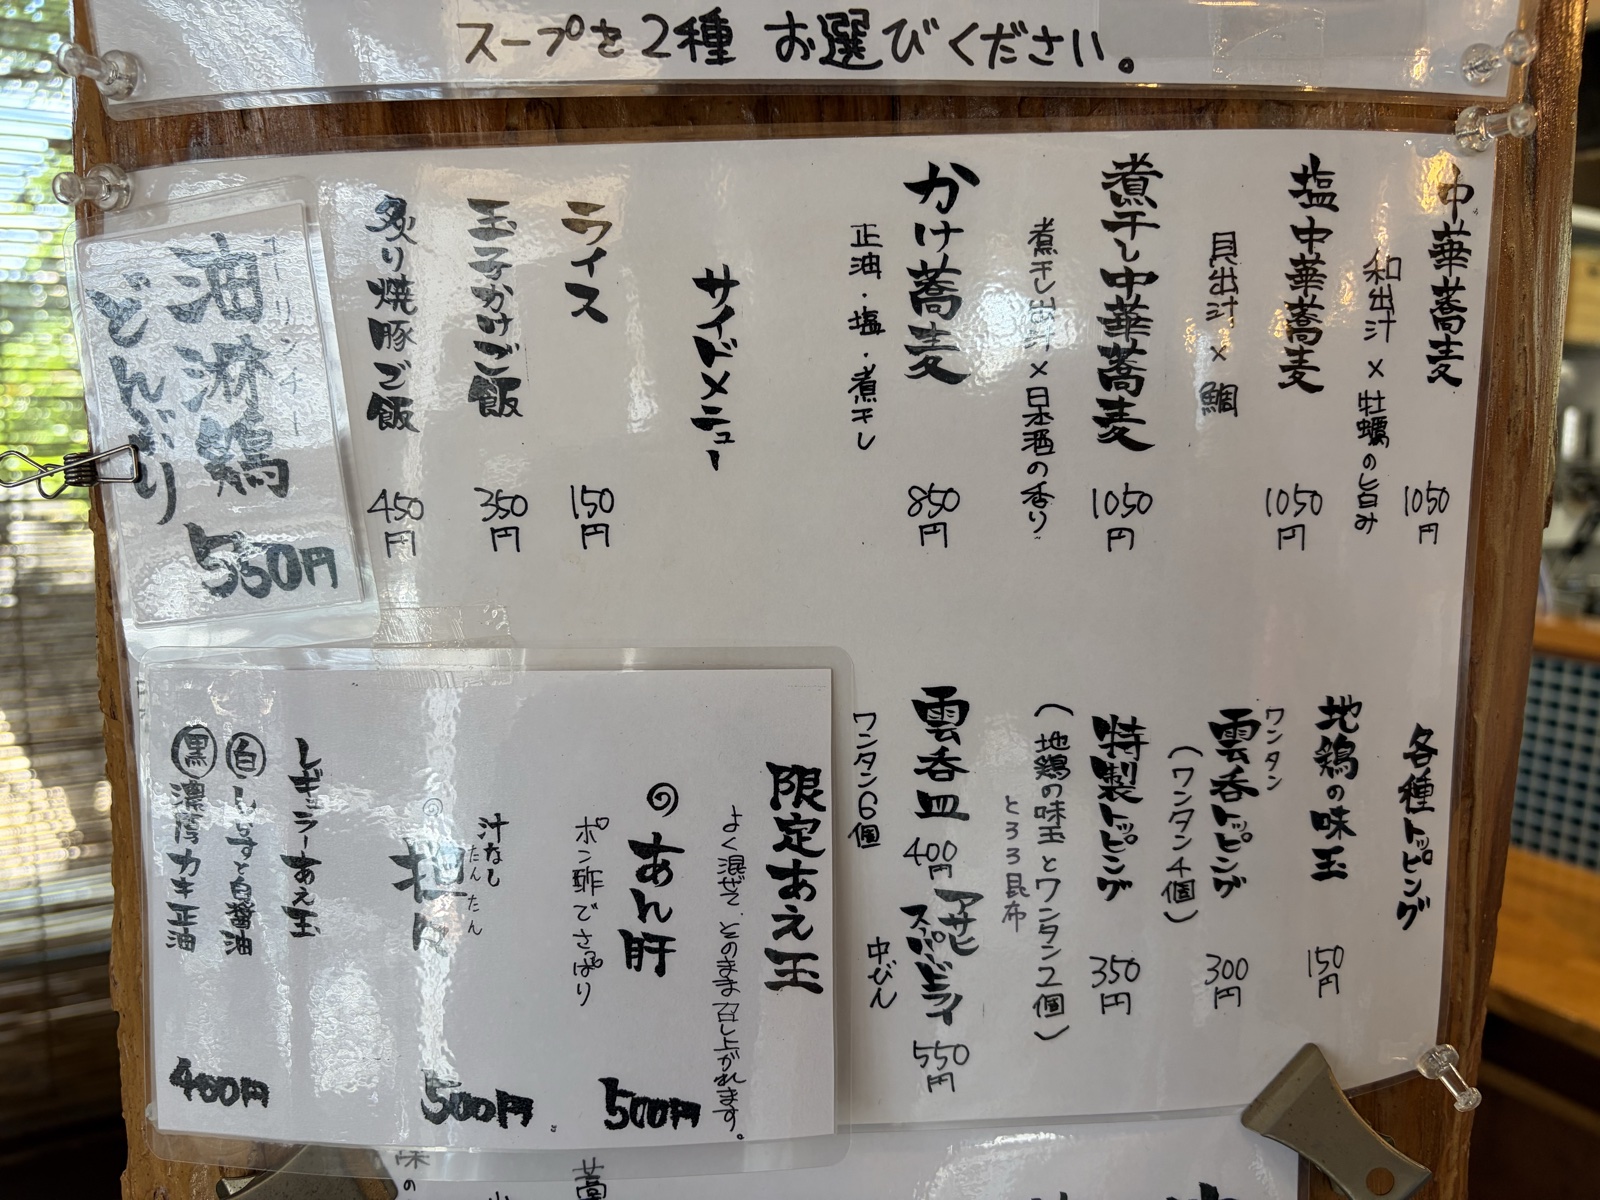 スープを2種 お選びください。
中華蕎麦 1050円
和出汁×牡蠣の旨み
塩中華蕎麦 1050円
貝出汁×鯛
煮干し中華蕎麦 1050円
煮干し出汁×日本酒の香り
かけ蕎麦 850円
正油・塩・煮干し
サイドメニュー
ライス 150円
玉子かけご飯 350円
炙り焼豚ご飯 450円
ユーリンチー
油淋鶏
どんぶり
550円
各種トッピング
地鶏の味玉 150円
ワンタン
雲呑トッピング 300円
(ワンタン4個)
特製トッピング 350円
(地鶏の味玉とワンタン2個)
とろろ昆布
雲呑皿 400円
ワンタン6個
アサヒ
スーパードライ 550円
中びん
限定あえ玉
よく混ぜて、そのまま召し上がれます。
◎あん肝 500円
ポン酢でさっぱり
汁なし
たんたん
◎担々 500円
レギュラーあえ玉
白 しらすと白醤油
黒 濃厚カキ正油
400円
味の